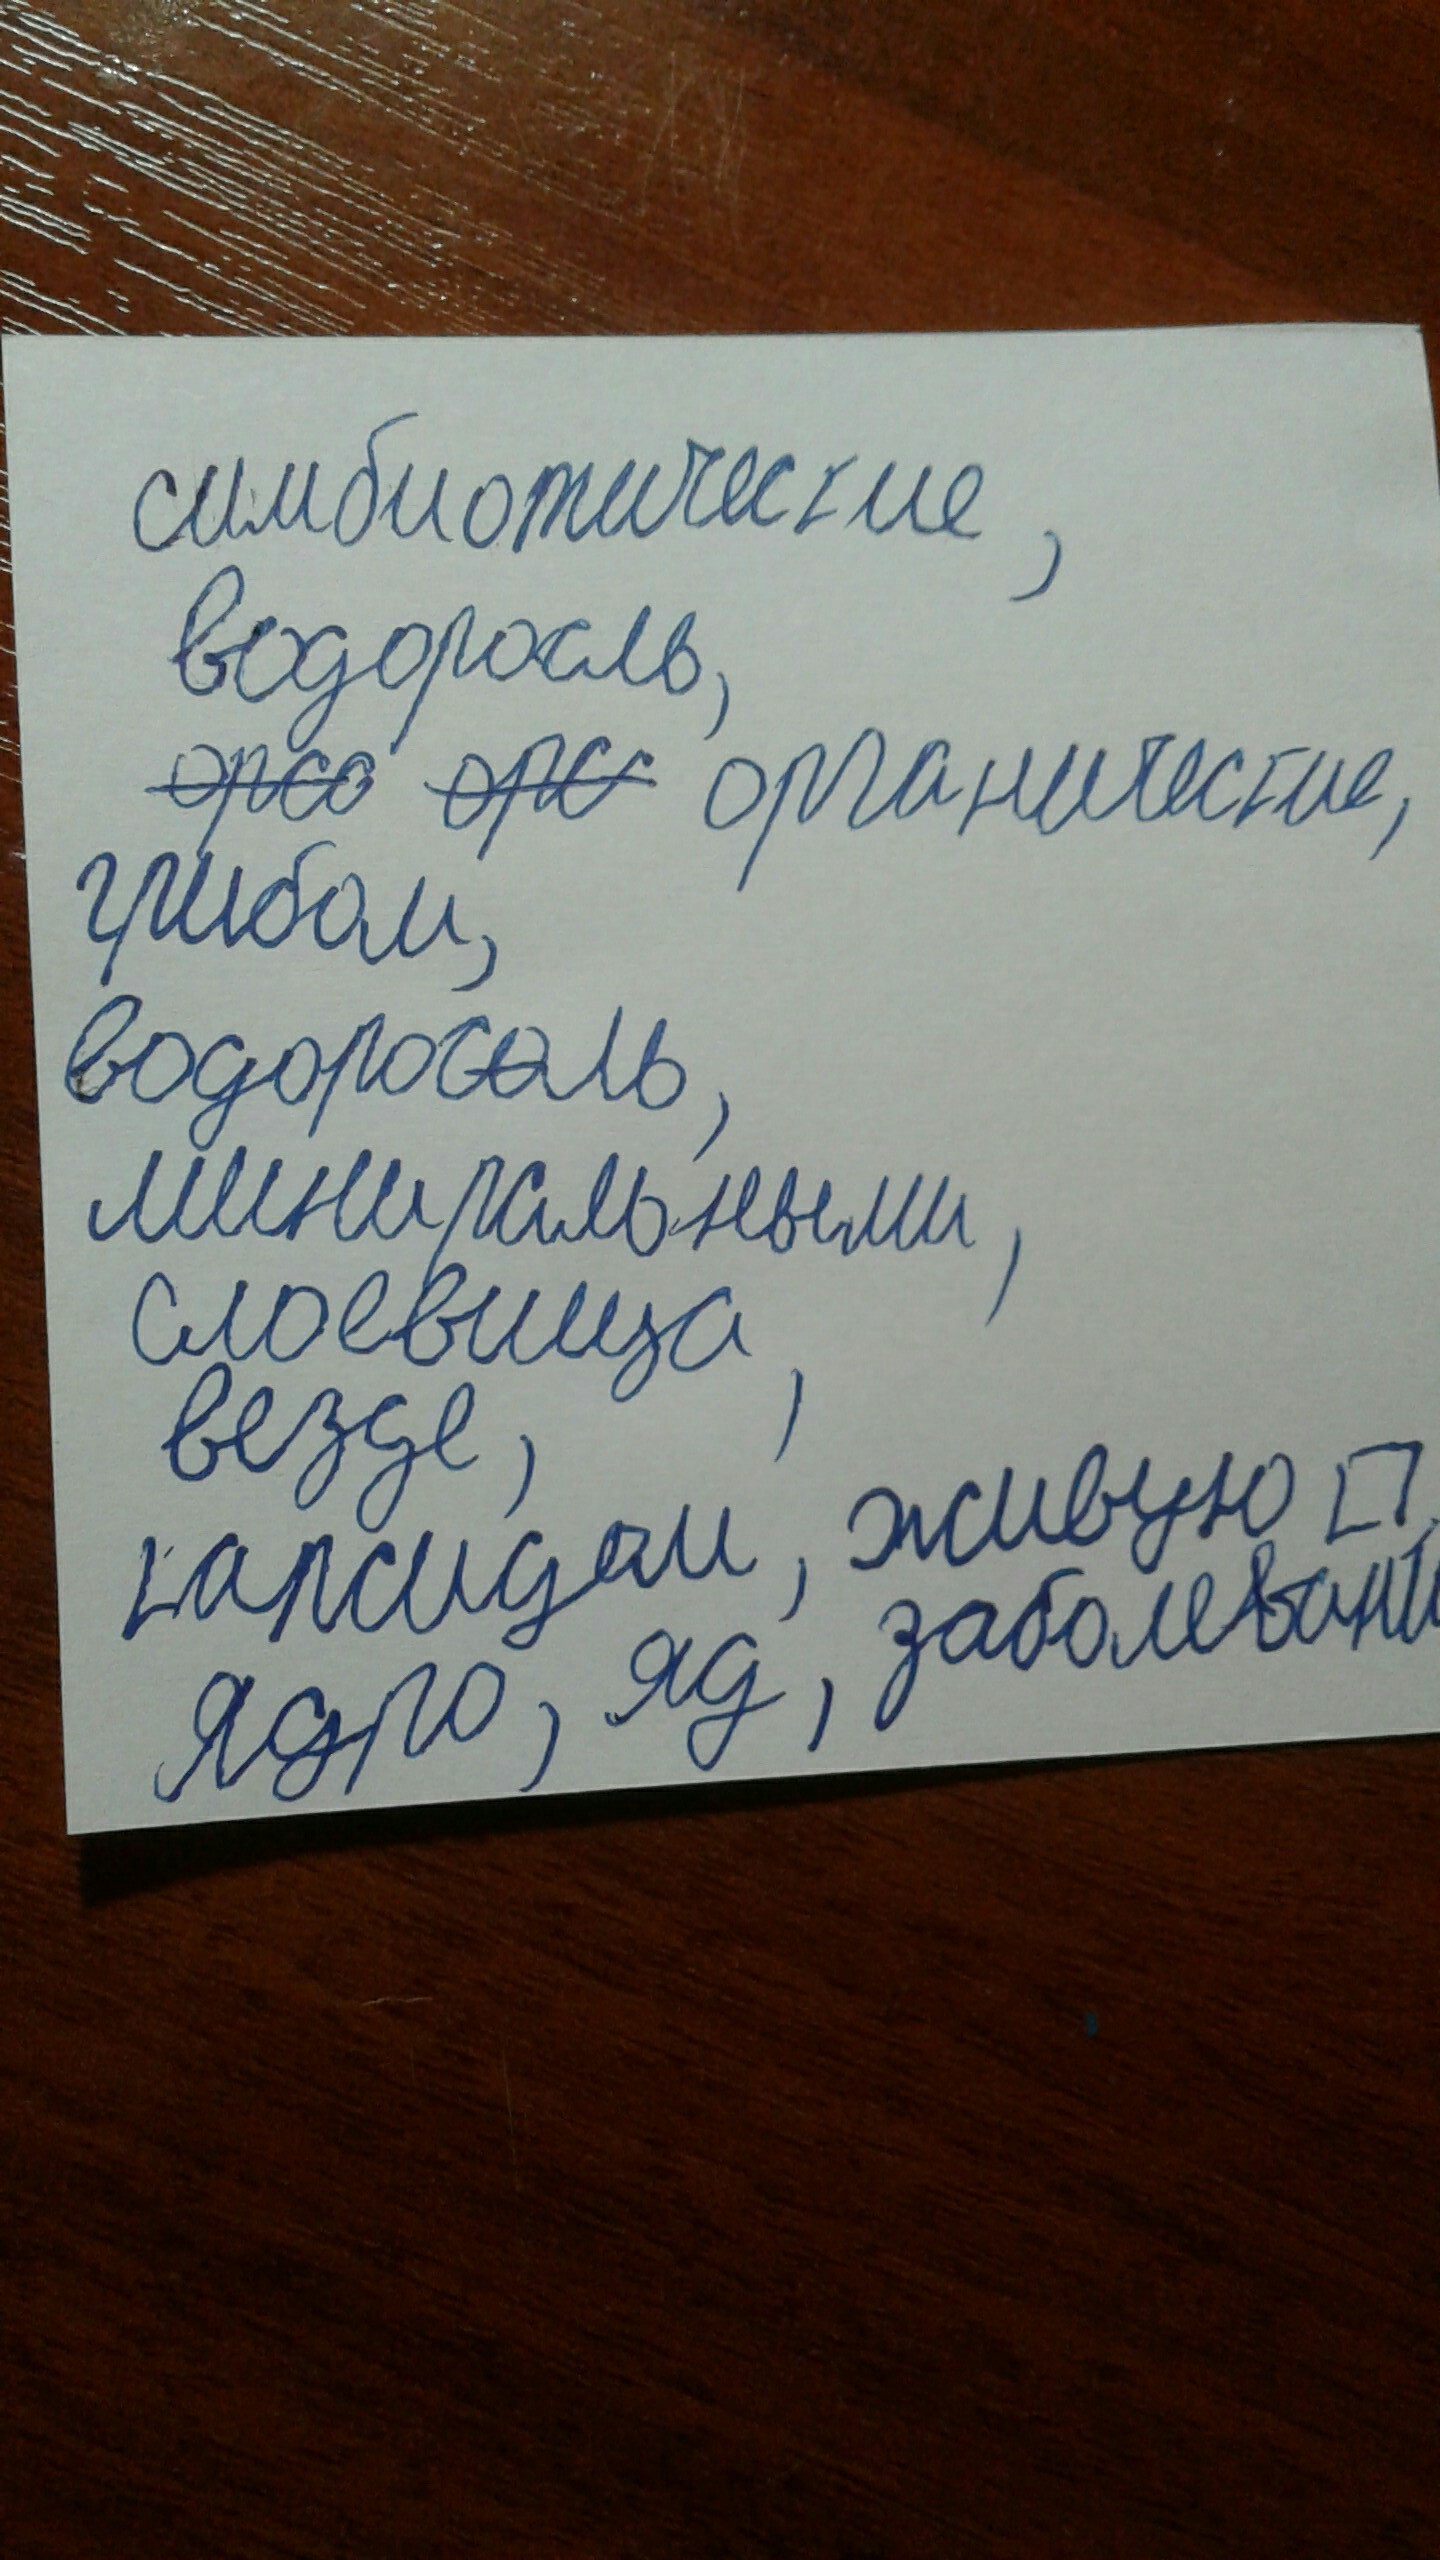 симбиотические,
водоросль,
органические,
грибом,
водоросль,
миниральными,
слоевища,
везде,
капсидом, живую
ядро, яд, заболевани